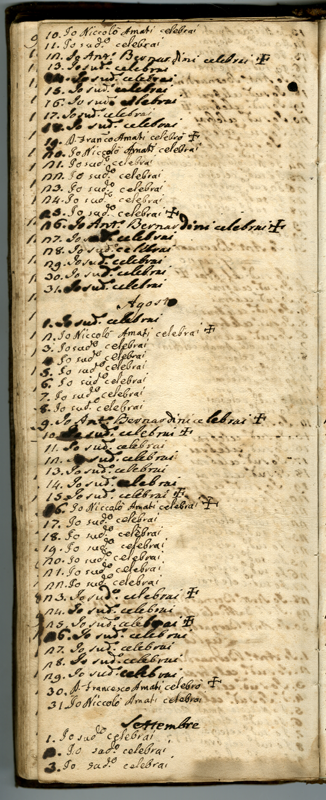 10. Io Niccolò Amati celebrai
11. Io sud.o celebrai
12. Io Ant.o Bernardini celebrai ✠
13. Io sud.o celebrai
14. Io sud.o celebrai
15. Io sud.o celebrai
16. Io sud.o celebrai
17. Io sud.o celebrai
18. Io sud.o celebrai
19. D. Franco Amati celebrò ✠
20. Io Niccolò Amati celebrai
21. Io sud.o celebrai
22. Io sud.o celebrai
23. Io sud.o celebrai
24. Io sud.o celebrai
25. Io sud.o celebrai ✠
26. Io Ant.o Bernardini celebrai ✠
27. Io sud.o celebrai
28. Io sud.o celebrai
29. Io sud.o celebrai
30. Io sud.o celebrai
31. Io sud.o celebrai
Agosto
1. Io sud.o celebrai
2. Io Niccolò Amati celebrai ✠
3. Io sud.o celebrai
4. Io sud.o celebrai
5. Io sud.o celebrai
6. Io sud.o celebrai
7. Io sud.o celebrai
8. Io sud. celebrai
9. Io Ant.o Bernardini celebrai ✠
10. Io sud.o celebrai ✠
11. Io sud.o celebrai
12. Io sud.o celebrai
13. Io sud.o celebrai
14. Io sud.o celebrai
15. Io sud.o celebrai ✠
16. Io Niccolò Amati celebrai ✠
17. Io sud.o celebrai
18. Io sud.o celebrai
19. Io sud.o celebrai
20. Io sud.o celebrai
21. Io sud.o celebrai
22. Io sud.o celebrai
23. Io sud.o celebrai ✠
24. Io sud.o celebrai
25. Io sud.o celebrai ✠
26. Io sud.o celebrai
27. Io sud.o celebrai
28. Io sud.o celebrai
29. Io sud.o celebrai
30. D. Francesco Amati celebrò ✠
31. Io Niccolò Amati celebrai
Settembre
1. Io sud.o celebrai
2. Io sud.o celebrai
3. Io sud.o celebrai